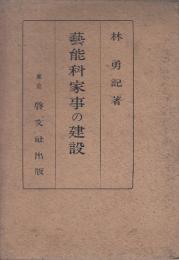 林勇記著
藝能科家事の建設
東京 啓文社出版